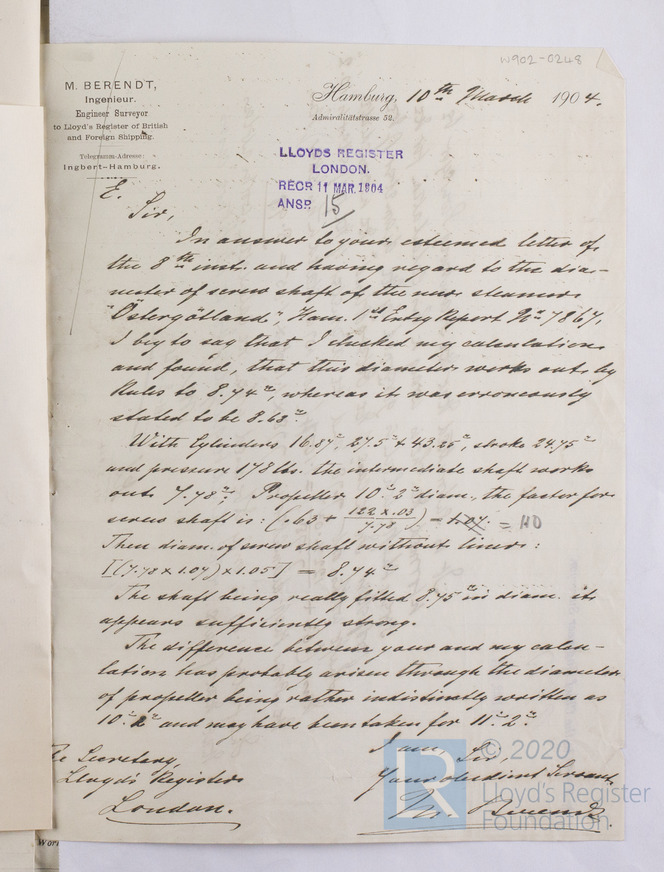 W902-0248
M. BERENDT,
Ingenieur.
Engineer Surveyor
to Lloyd's Register of British
and Foreign Shipping.
Telegramm-Adresse:
Ingbert-Hamburg.
Hamburg, 10th March 1904.
Admiralitätstrasse 52.
LLOYDS REGISTER
LONDON.
RECD 11 MAR. 1904
ANSD 15
E.
Sir,
In answer to your esteemed letter of
the 8th inst. and having regard to the dia-
meter of screw shaft of the new steamer
"Östergötland", Ham. 1st Entry Report No. 7867,
I beg to say that I checked my calculations
and found, that this diameter works out by
Rules to 8.74", whereas it was erroneously
stated to be 8.63".
With Cylinders 16.87", 27.5" & 43.25", stroke 24.75"
and pressure 178 lbs. the intermediate shaft works
out 7.78", Propeller 10' 2" diam., the factor for
screw shaft is: (.63 + 122 x .03 / 7.78) = 1.07. =
Then diam. of screw shaft without liner:
[(7.78 x 1.07) x 1.05] = 8.74"
The shaft being really fitted 8.75" in diam. it
appears sufficiently strong.
The difference between your and my calcu-
lation has probably arisen through the diameter
of propeller being rather indistinctly written as
10' 2" and may have been taken for 11' 2".
I am, Sir,
Your obedient Servant
M. Berendt.
The Secretary,
Lloyd's Register
London.
R
© 2020
Lloyd's Register
Foundation